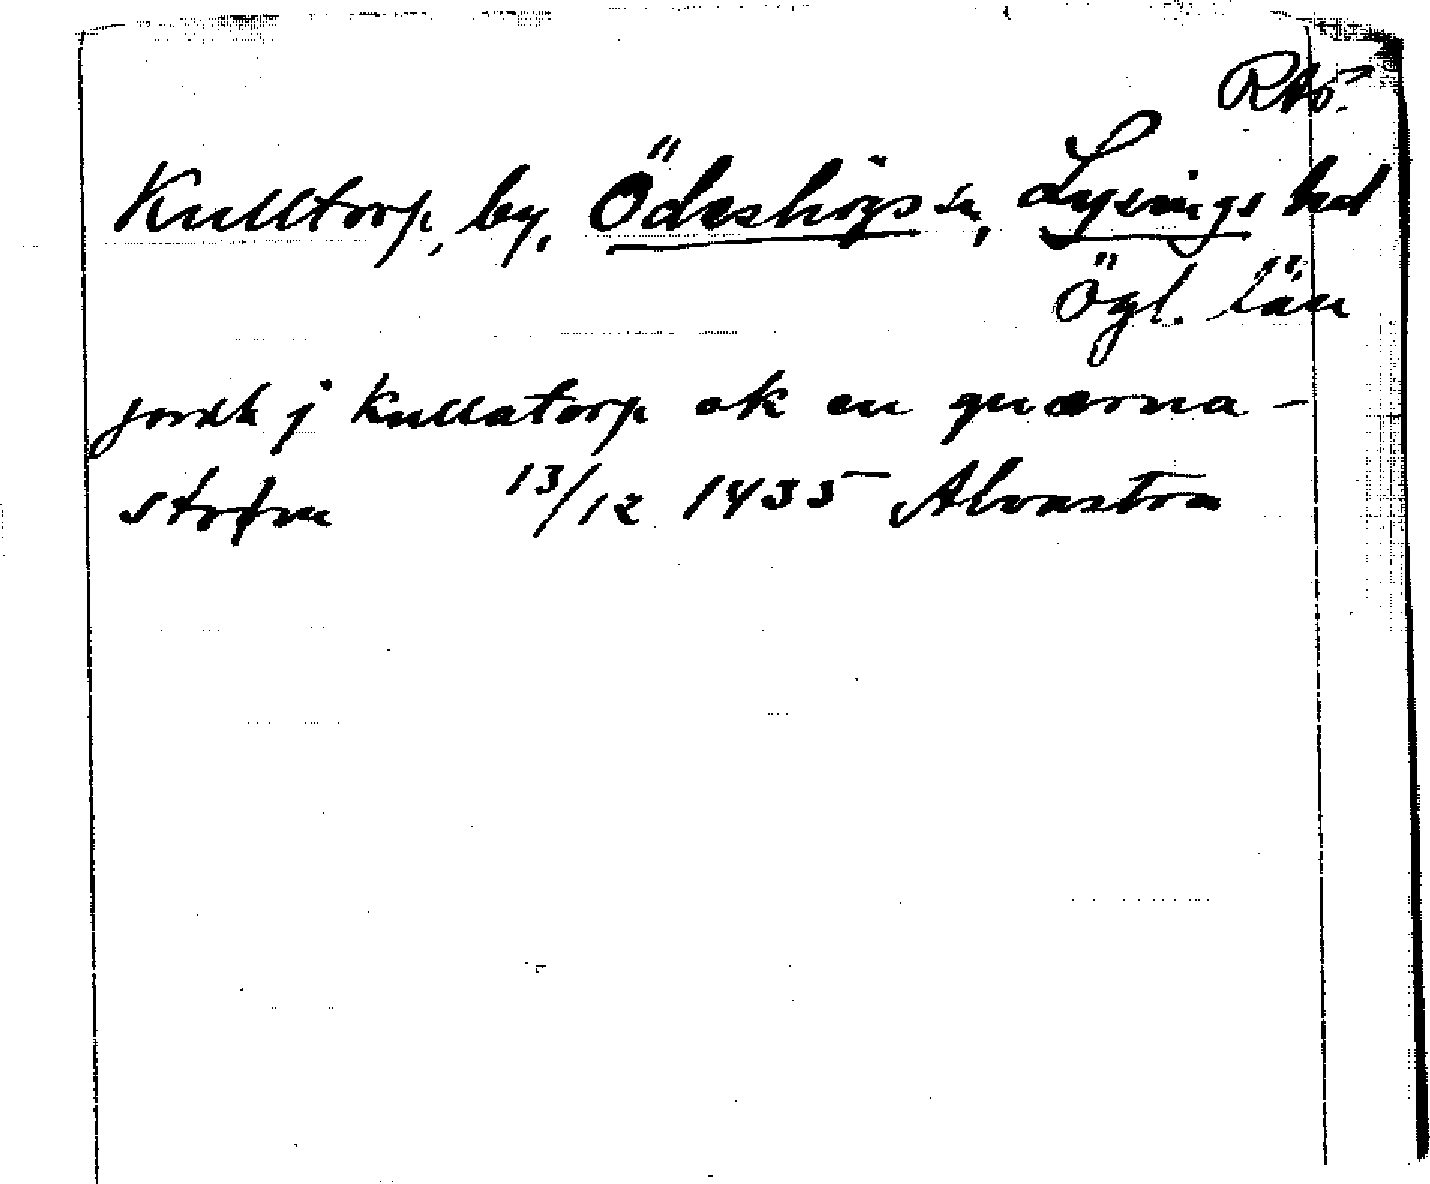 RAö.
Kulltorp, by, Ödeshögs sn, Lysings hd
Ögl. län
jordh j Kullatorp ok en quærna-
strøm 13/12 1435 Alvastra